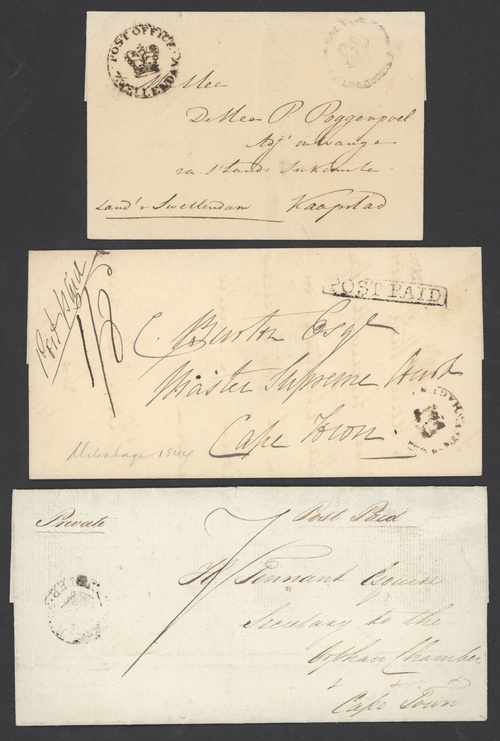 POST OFFICE
ZWELLENDAM
De Heer P. Poggenpoel
Adj
Land's Swellendam Kaapstad
Post Paid
POST PAID
C. Burton Esqr
Master Supreme Court
Cape Town
Uitenhage 1844
Private
Post Paid
H Tennant Esquire
Secretary to the
Orphan Chamber
Cape Town